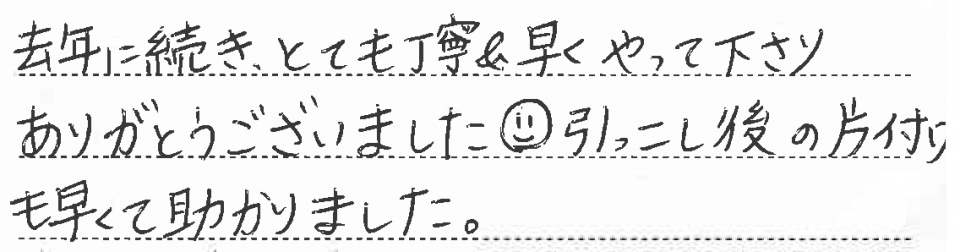 去年に続き、とても丁寧&早くやって下さり
ありがとうございました☺引っこし後の片付け
も早くて助かりました。